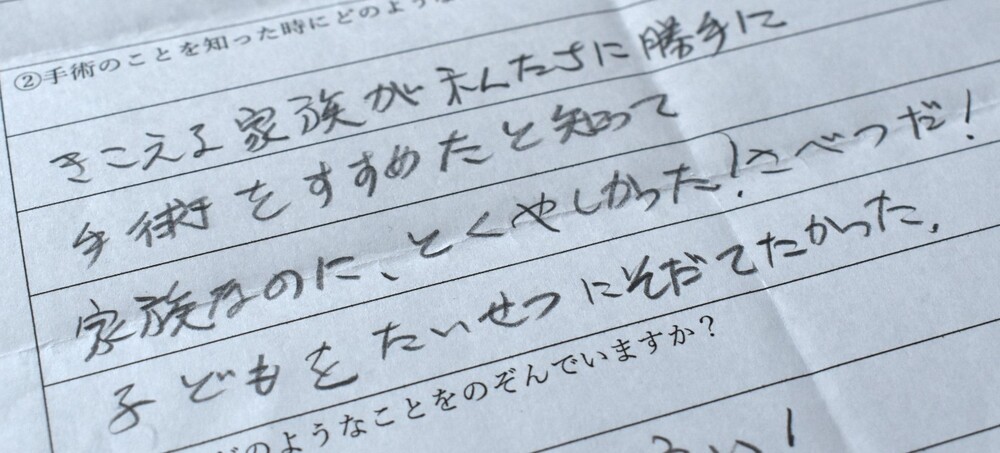 ②手術のことを知った時にどのような
きこえる家族が私たちに勝手に
手術をすすめたと知って
家族なのに、とくやしかった！さべつだ！
子どもをたいせつにそだてたかった。
どのようなことをのぞんでいますか？